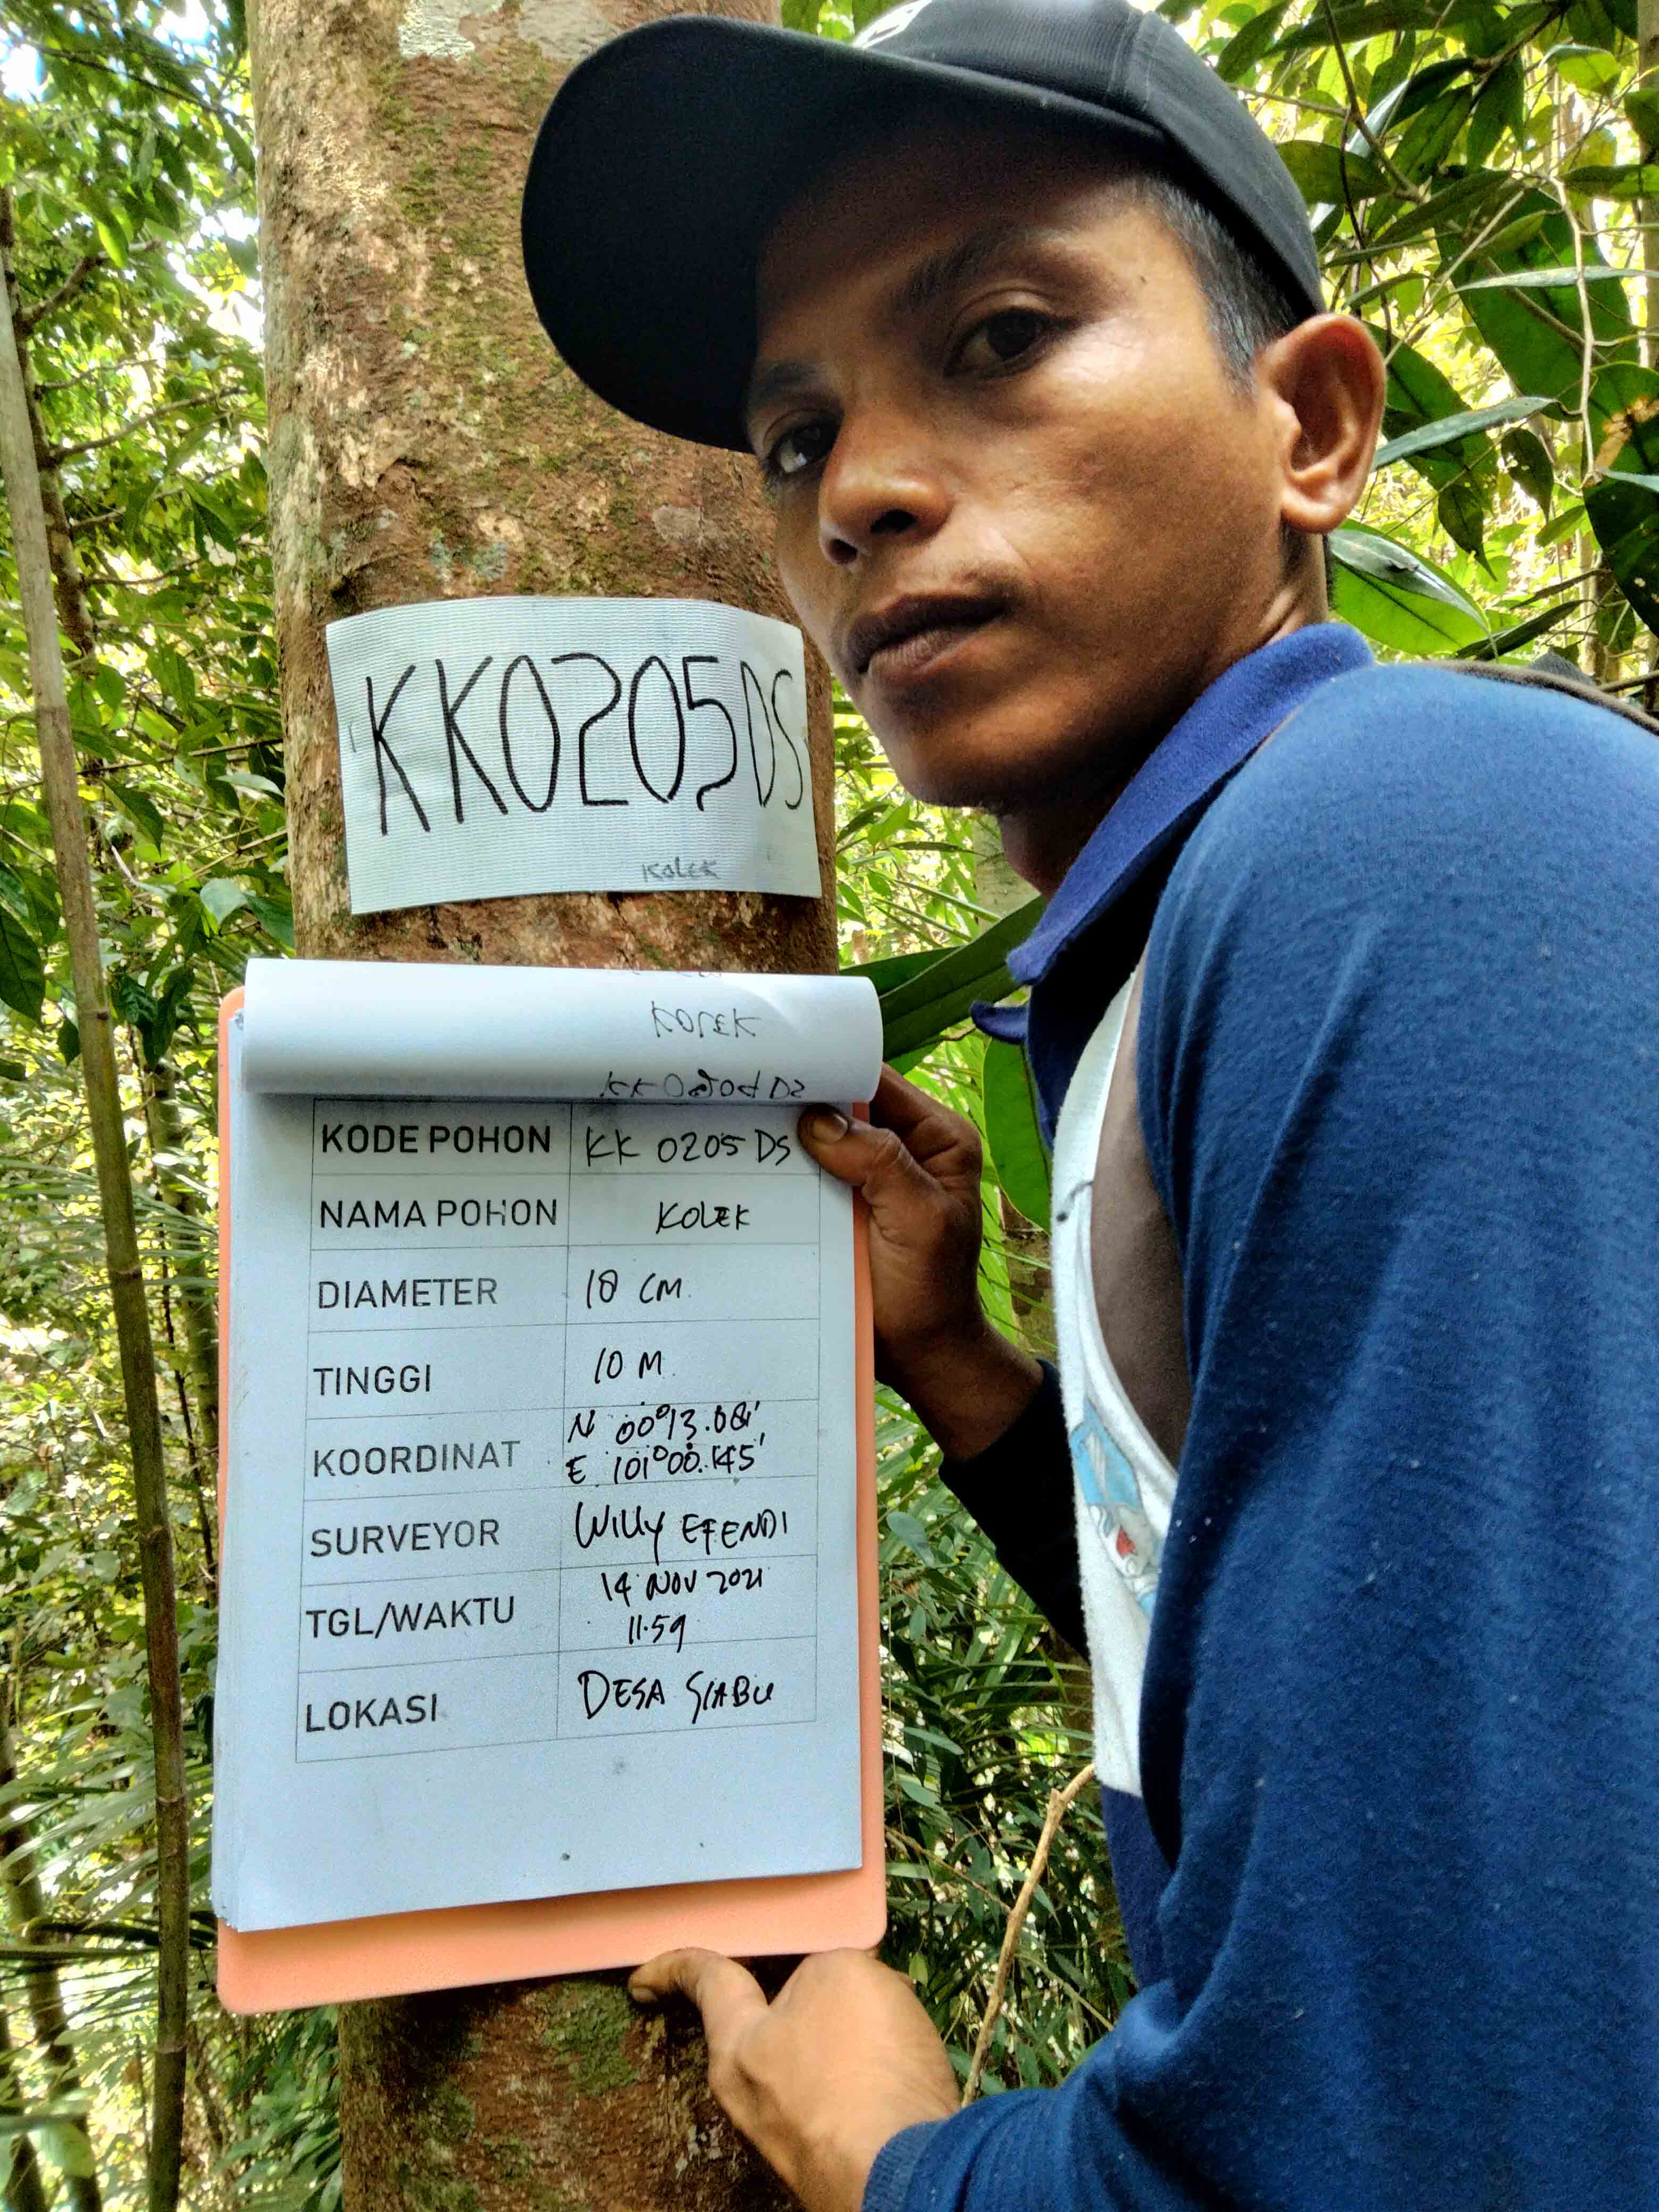 KK0205DS
KOLEK
KOLEK
KODE POHON KK 0205 DS
NAMA POHON KOLEK
DIAMETER 18 CM
TINGGI 10 M
KOORDINAT N 00°13.081'
E 101°00.145'
SURVEYOR WILLY EFENDI
TGL/WAKTU 14 NOV 2021
11.59
LOKASI DESA SIABU